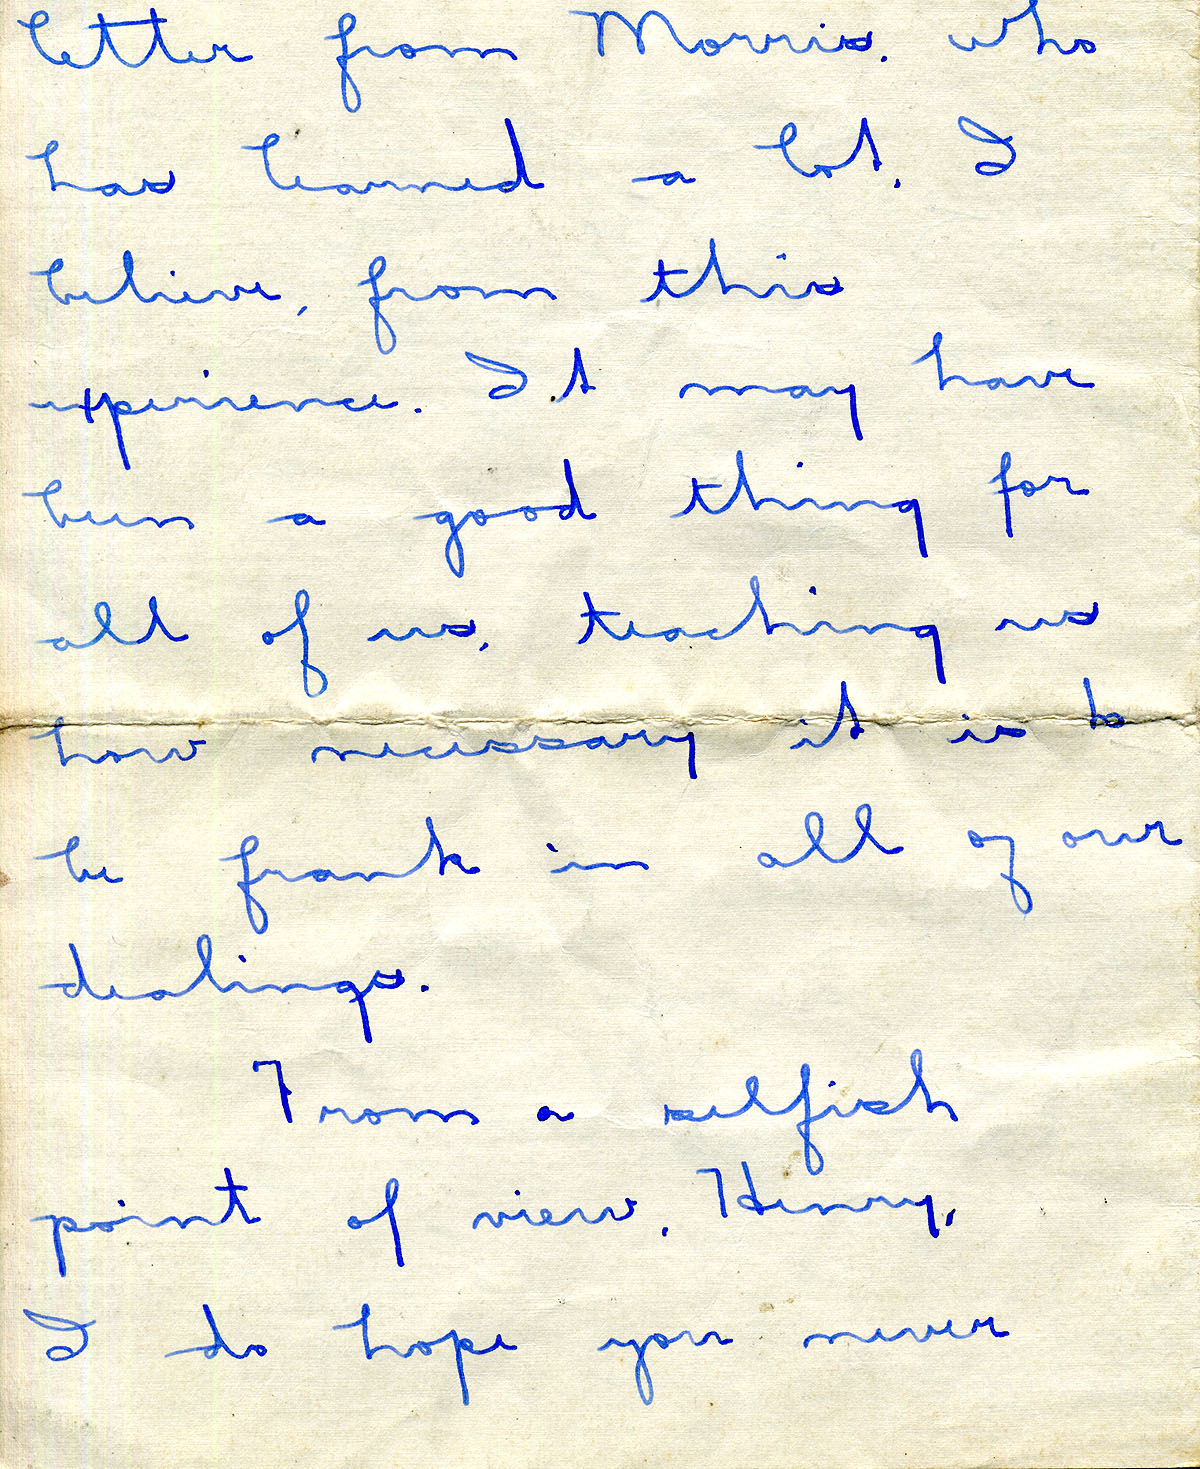 letter from Morris, who
has learned a lot, I
believe, from this
experience. It may have
been a good thing for
all of us, teaching us
how necessary it is to
be frank in all of our
dealings.
From a selfish
point of view, Henry,
I do hope you never